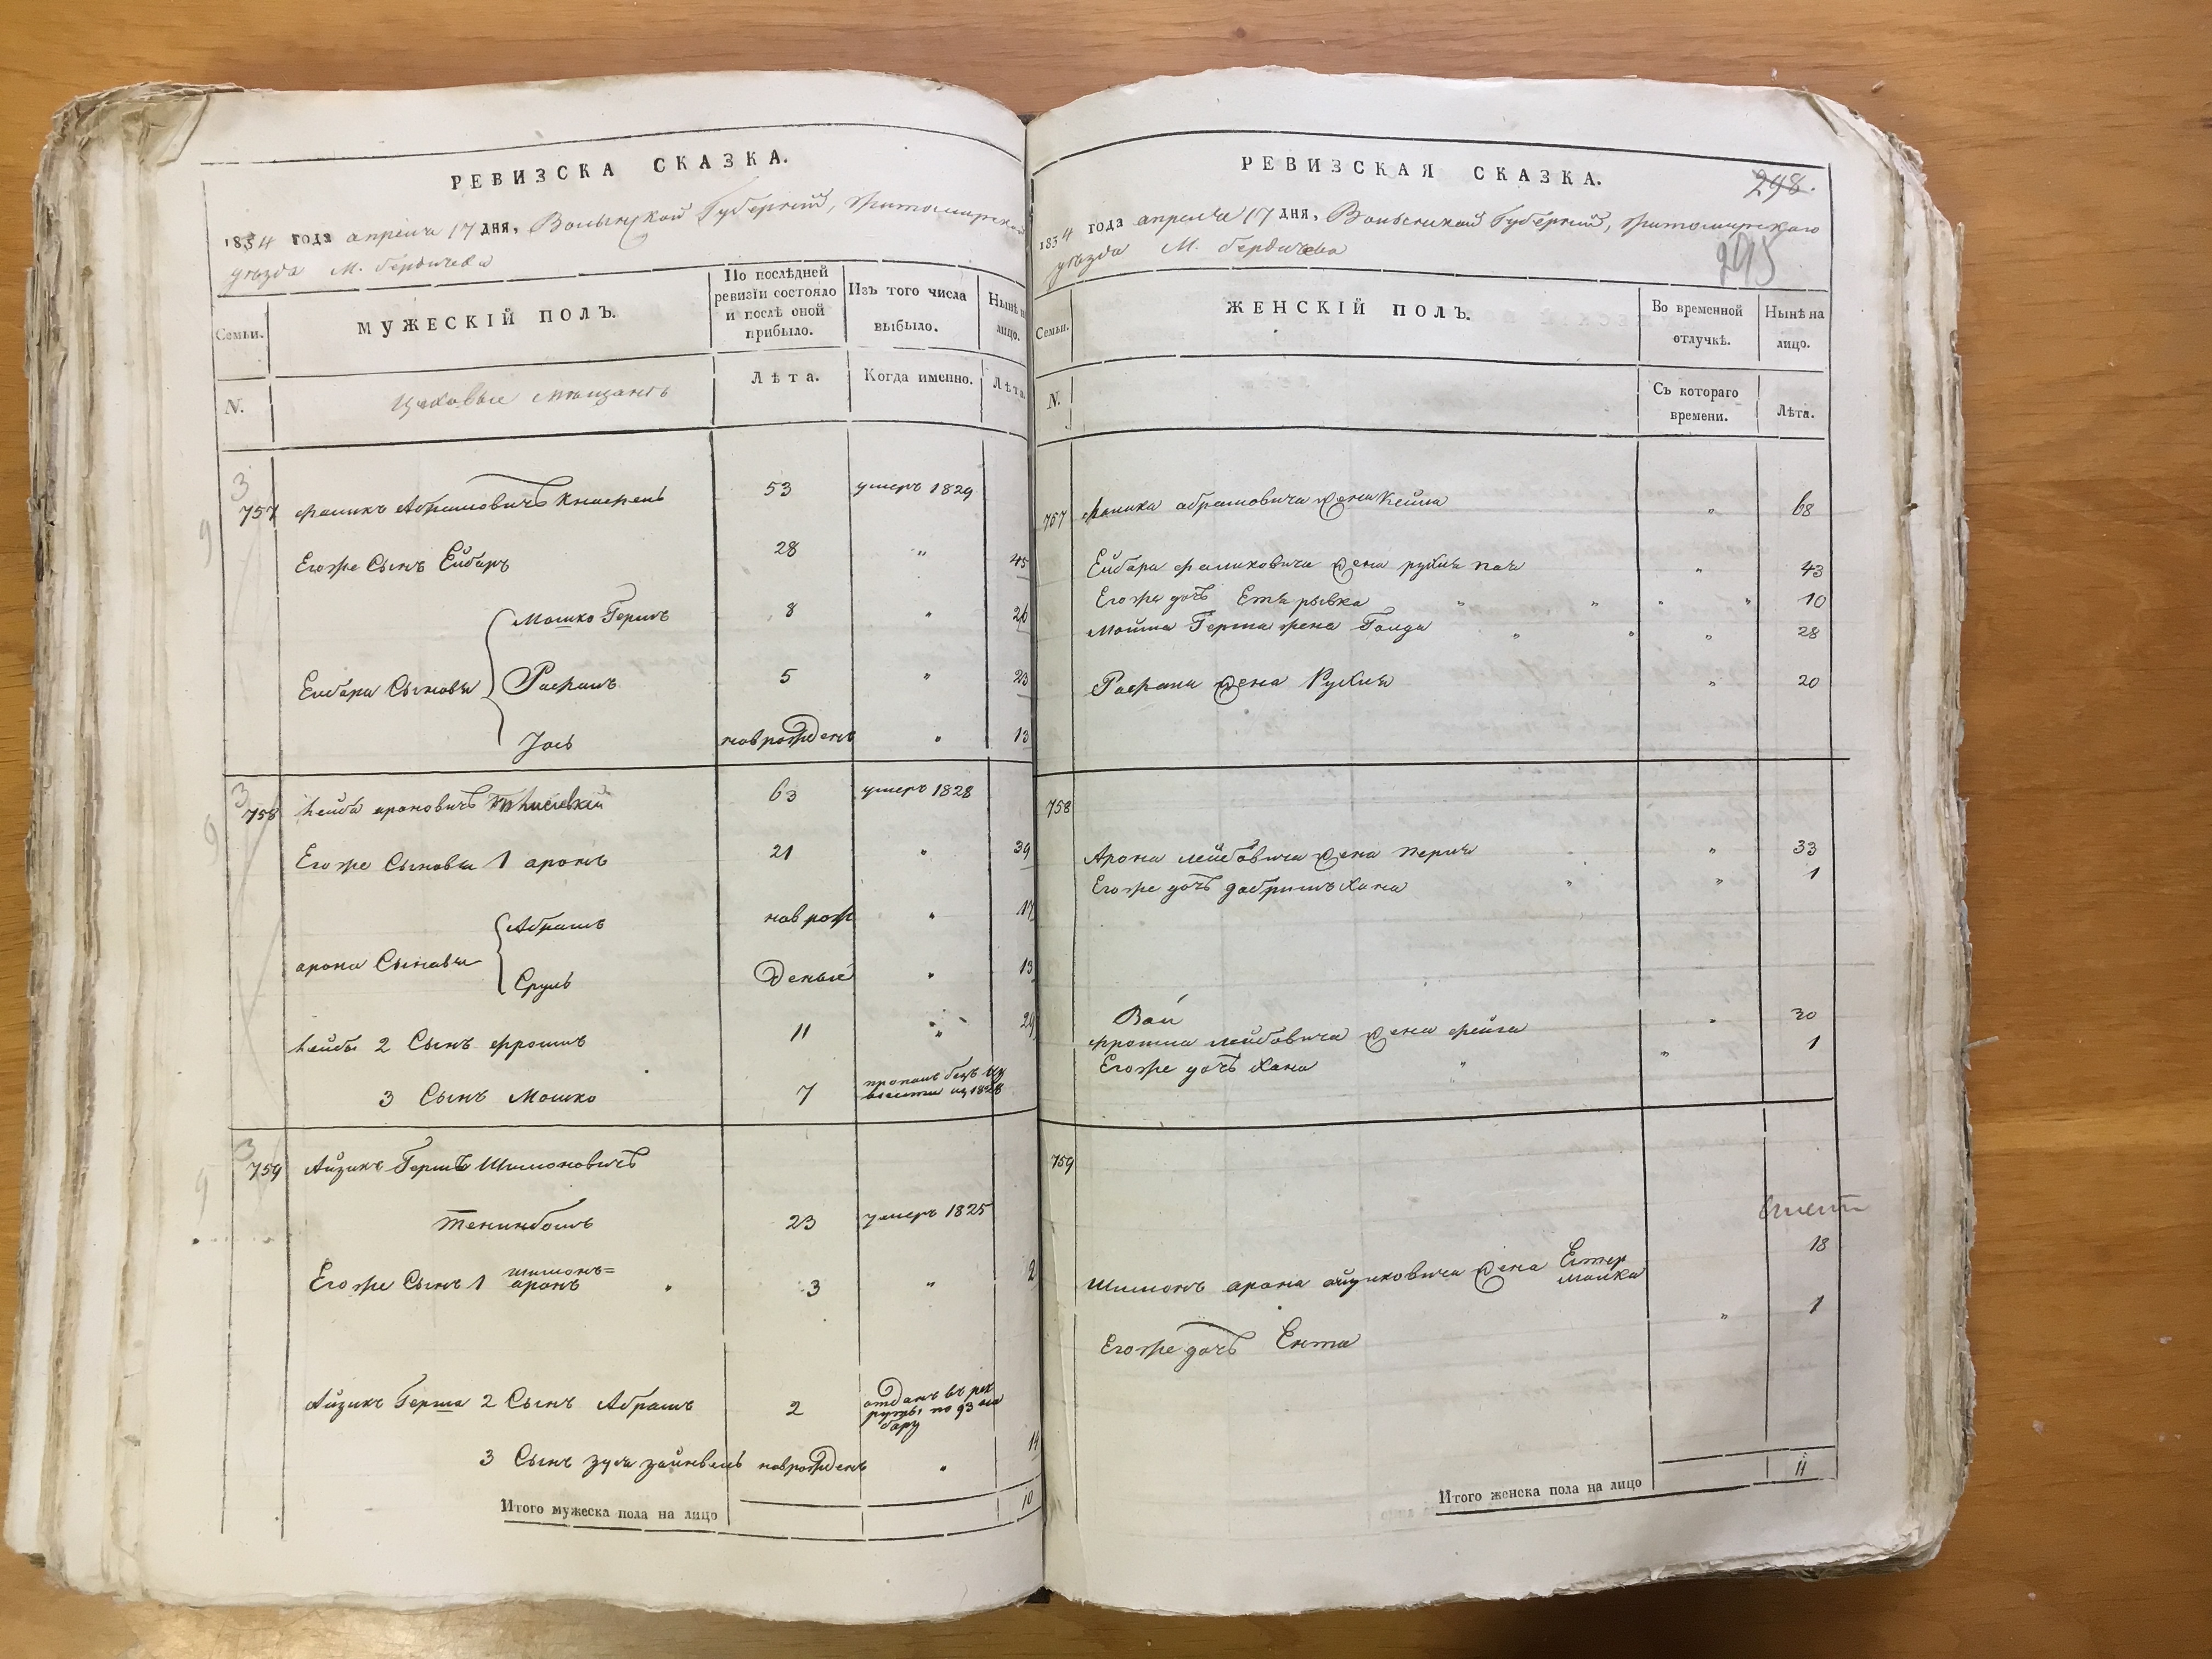 РЕВИЗСКА СКАЗКА.
1834 года апреля 17 дня, Волынской Губернии, Житомирского
уезда М. бердичева
Семьи.
МУЖЕСКІЙ ПОЛЪ.
По послѣдней
ревизіи состояло
и послѣ оной
прибыло.
Изъ того числа
выбыло.
Нынѣ н
лицо.
N.
Цеховые мещанъ
Лѣта.
Когда именно.
Лѣта
3
757 Фаликъ Абрамовичъ 53 умеръ 1829
Егоже Сынъ Ейбаръ 28 " 45
Мошко Гершъ 8 " 26
Ейбара Сыновья Рафаилъ 5 " 23
Іось новрожденъ " 13
3
758 Лейба ароновичъ 63 умеръ 1828
Егоже Сыновья 1 аронъ 21 " 39
Абрамъ новрож " 17
арона Сыновья
Сруль деные " 13
Лейбы 2 Сынъ фроимъ 11 " 29
3 Сынъ Мошко 7 пропалъ безъ
вести 1828
3
759 Айзикъ Гершъ Шимоновичъ
Тенинбомъ 23 умеръ 1825
Егоже Сынъ 1 шимонъ=
аронъ " 3 " 2
Айзикъ Герша 2 Сынъ Абрамъ 2 отданъ въ рек
руты по 93 на
бору
3 Сынъ зуся зайнвель новрожденъ " 14
Итого мужеска пола на лицо 10
РЕВИЗСКАЯ СКАЗКА.
248.
1834 года апреля 17 дня, Волынской Губернии, Житомирского
уезда М. бердичева
295
Семьи.
ЖЕНСКІЙ ПОЛЪ.
Во временной
отлучкѣ.
Нынѣ на
лицо.
N.
Съ котораго
времени.
Лѣта.
757 Фалика абрамовича жена Кейла " 68
Ейбара фаликовича жена рухля " 43
Егоже дочь Етя рывка " " " " 10
Мошка Герша жена Голда " " " 28
Рафаила жена Рухля " 20
758
Арона лейбовича жена перля " 33
Егоже дочь добришъ хана " " 1
фроима лейбовича жена фейга " 30
Егоже дочь хана " " 1
759
Шимонъ арона айзиковича жена Естер
малка 18
Егоже дочь Ента " 1
Итого женска пола на лицо 11